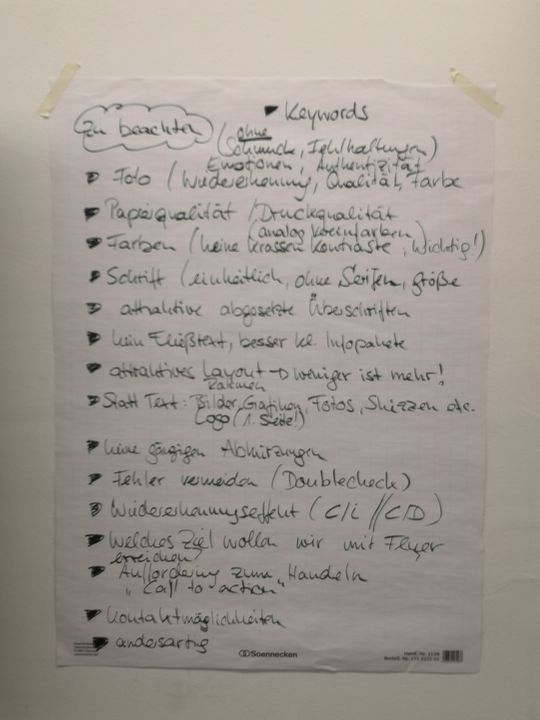 zu beachten
▶ Keywords
(ohne
Schmuck, Fehlhaltungen)
Emotionen, Authentizität
Foto (Wiedererkennung, Qualität, Farbe
Papierqualität / Druckqualität
(analog Vereinfarben)
Farben (keine krassen Kontraste, Wichtig!)
Schrift (einheitlich, ohne Serifen, größe
attraktive abgesetzte Überschriften
kein Fließtext, besser kl. Infopakete
attraktives Layout → weniger ist mehr!
Rahmen
Statt Text: Bilder, Grafiken, Fotos, Skizzen etc.
Logo (1. Seite!)
keine gängigen Abkürzungen
Fehler vermeiden (Doublecheck)
Wiedererkennungseffekt (C/i // C/D)
Welches Ziel wollen wir mit Flyer
erreichen?
Aufforderung zum Handeln
"Call to action"
Kontaktmöglichkeiten
andersartig
Soennecken